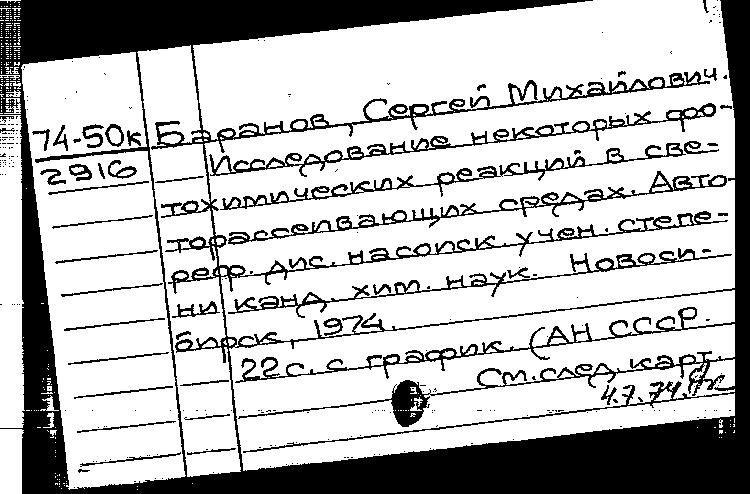 74-50к Баранов, Сергей Михайлович.
2916 Исследование некоторых фо-
тохимических реакций в све-
торассеивающих средах. Авто-
реф. дис. на соиск. учен. степе-
ни канд. хим. наук. Новоси-
бирск, 1974.
22с. с график. (АН СССР.
См. след. карт.
4.7.74.